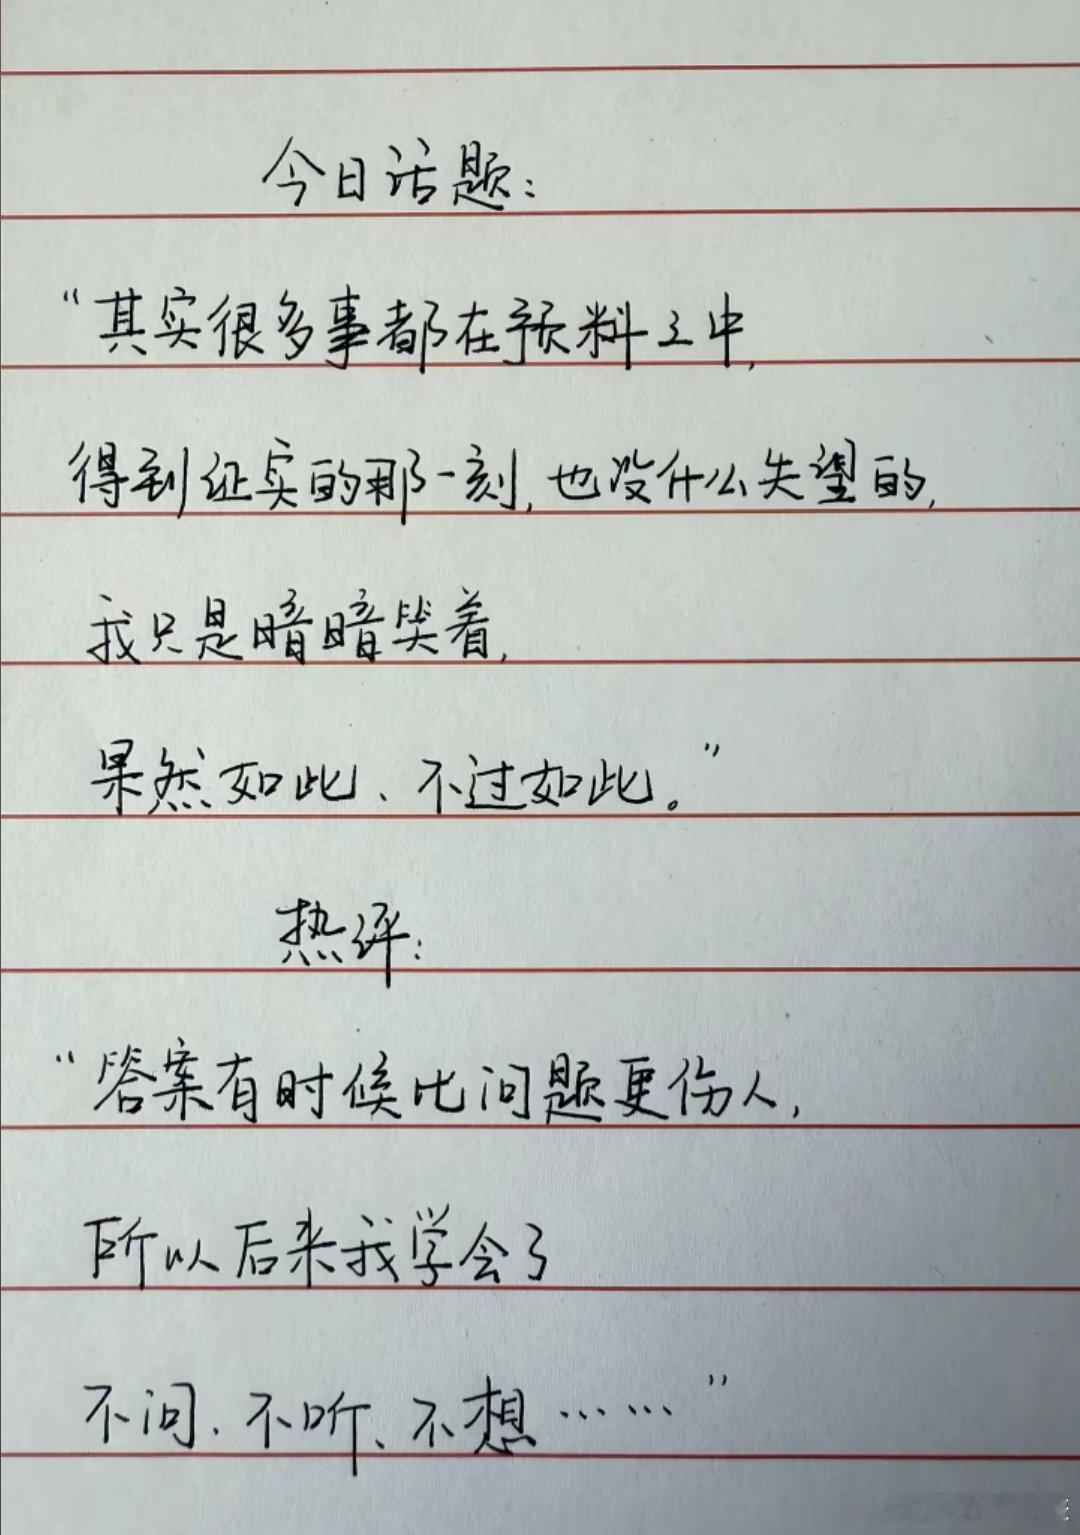 今日话题：
“其实很多事都在预料之中，
得到证实的那一刻，也没什么失望的，
我只是暗暗笑着，
果然如此、不过如此。”
热评：
“答案有时候比问题更伤人，
所以后来我学会了
不问、不听、不想……”